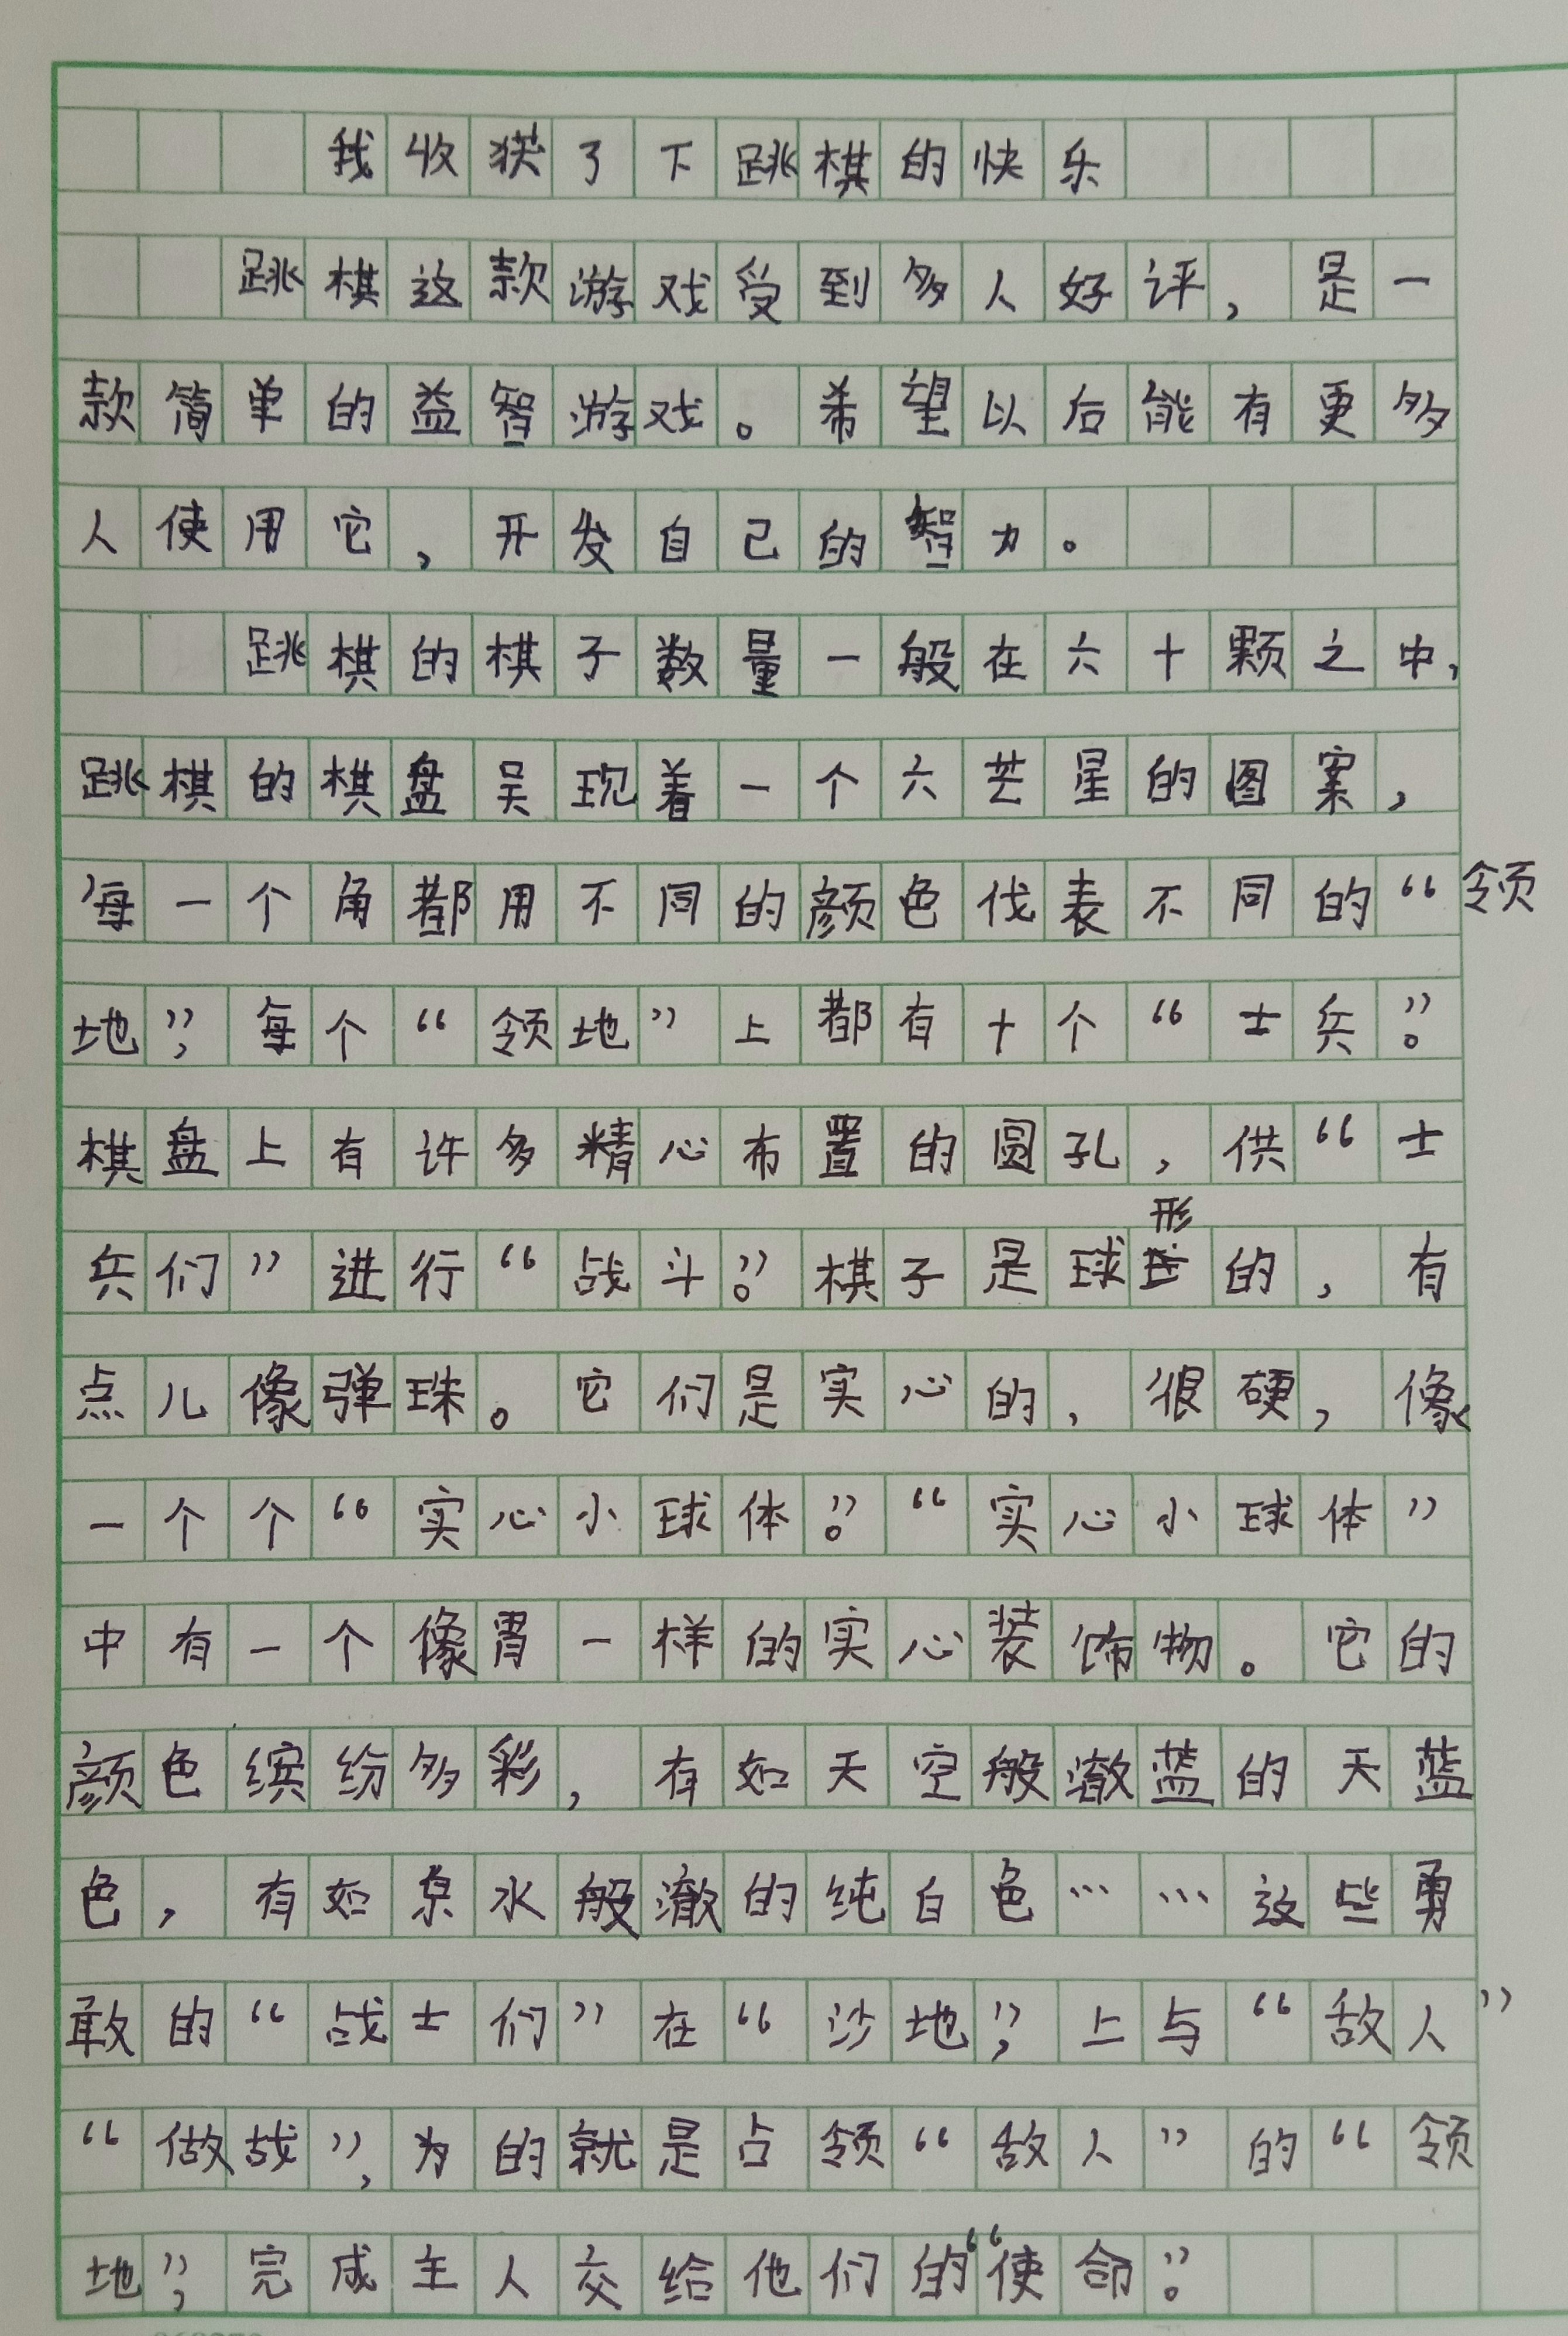 我收获了下跳棋的快乐
跳棋这款游戏受到多人好评，是一
款简单的益智游戏。希望以后能有更多
人使用它，开发自己的智力。
跳棋的棋子数量一般在六十颗之中，
跳棋的棋盘吴现着一个六芒星的图案，
每一个角都用不同的颜色伐表不同的“领
地”，每个“领地”上都有十个“士兵”。
棋盘上有许多精心布置的圆孔，供“士
兵们”进行“战斗”。棋子是球形的，有
点儿像弹珠。它们是实心的，很硬，像
一个个“实心小球体”。“实心小球体”
中有一个像胃一样的实心装饰物。它的
颜色缤纷多彩，有如天空般澈蓝的天蓝
色，有如泉水般澈的纯白色……这些勇
敢的“战士们”在“沙地”，上与“敌人”
“做战”，为的就是占领“敌人”的“领
地”，完成主人交给他们的“使命”。